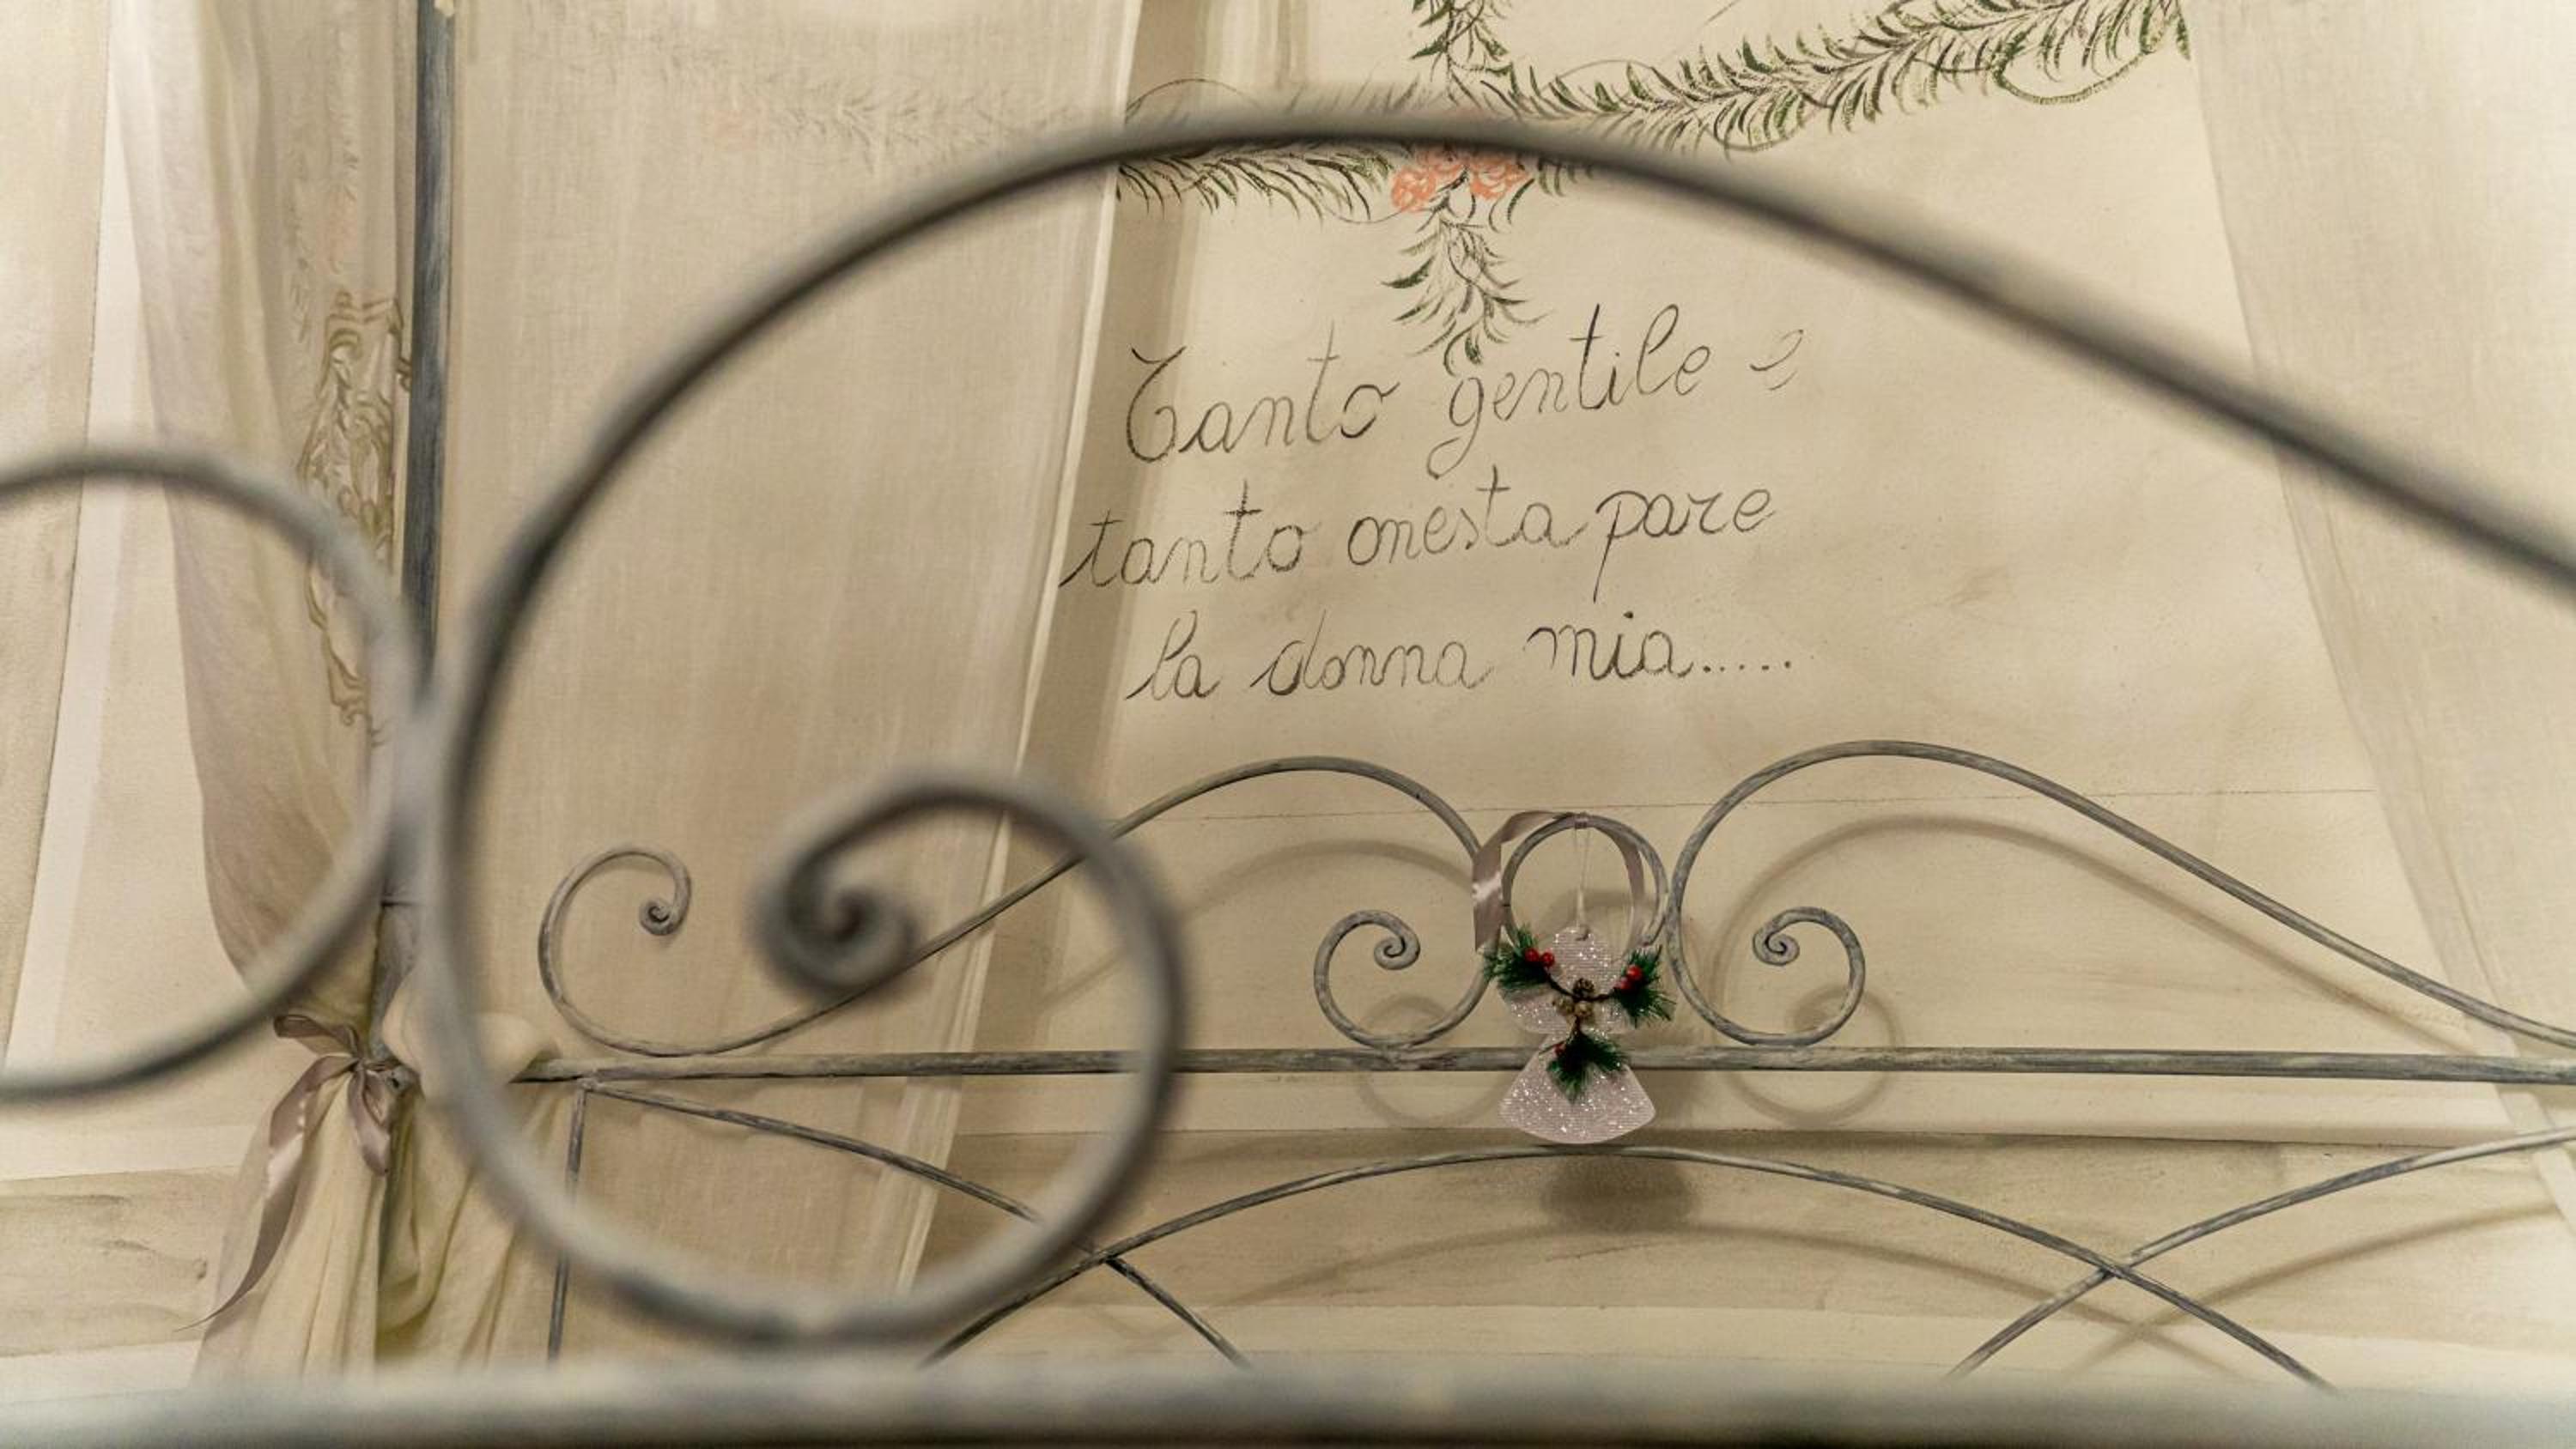 Tanto gentile e
tanto onesta pare
la donna mia.....